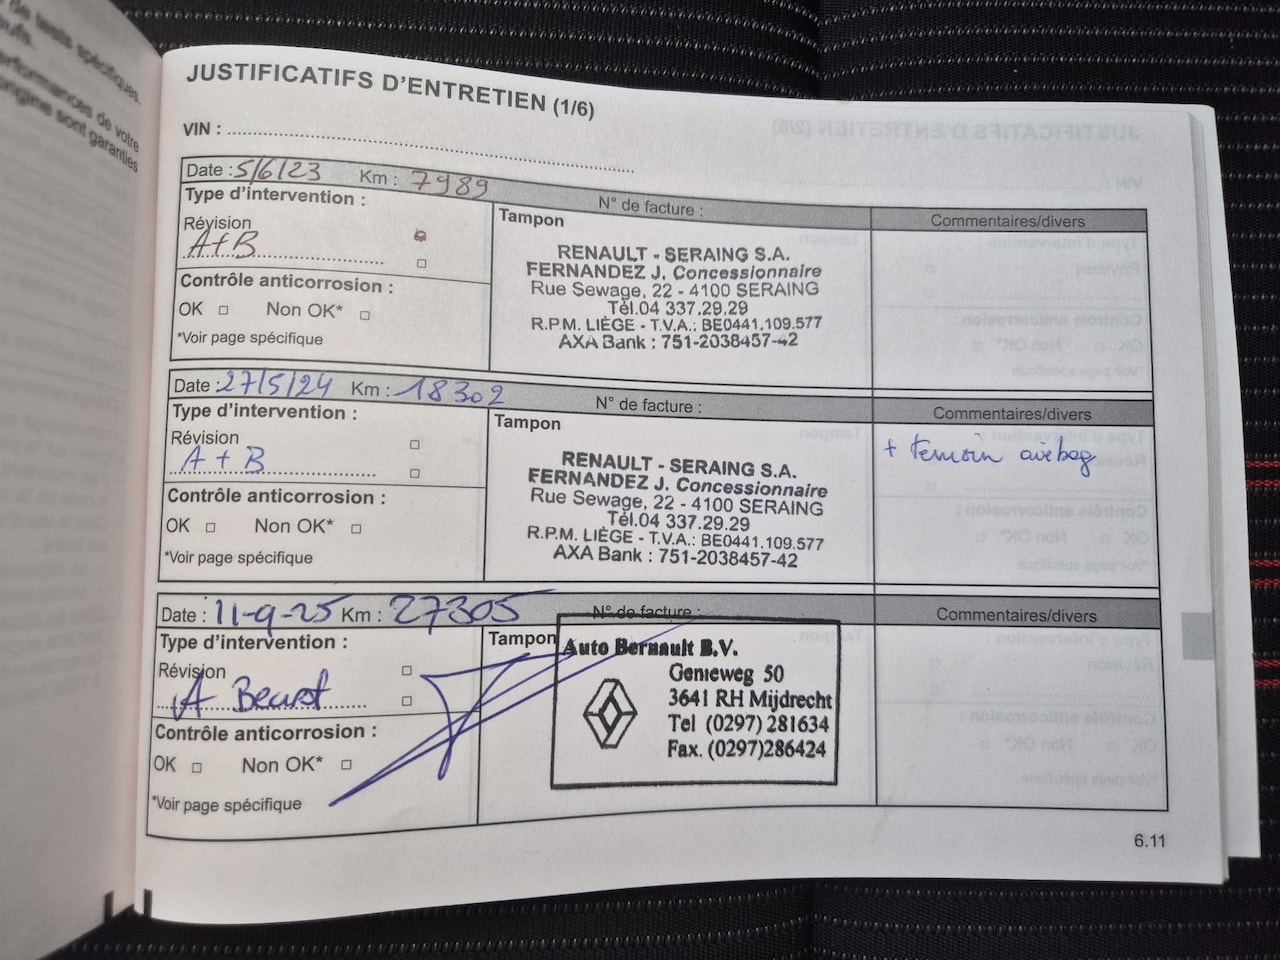 de tests spécifiques,
performances de votre
origine sont garanties
JUSTIFICATIFS D'ENTRETIEN (1/6)
VIN :
Date : 5/6/23 Km : 7989 N° de facture :
Type d'intervention :
Révision
A+B
Contrôle anticorrosion :
OK □ Non OK* □
*Voir page spécifique
Tampon
RENAULT - SERAING S.A.
FERNANDEZ J. Concessionnaire
Rue Sewage, 22 - 4100 SERAING
Tél.04 337.29.29
R.P.M. LIÈGE - T.V.A.: BE0441.109.577
AXA Bank : 751-2038457-42
Commentaires/divers
Date : 27/5/24 Km : 18302 N° de facture :
Type d'intervention :
Révision
A + B
Contrôle anticorrosion :
OK □ Non OK* □
*Voir page spécifique
Tampon
RENAULT - SERAING S.A.
FERNANDEZ J. Concessionnaire
Rue Sewage, 22 - 4100 SERAING
Tél.04 337.29.29
R.P.M. LIÈGE - T.V.A.: BE0441.109.577
AXA Bank : 751-2038457-42
Commentaires/divers
+ temoin airbag
Date : 11-9-25 Km : 27305 N° de facture :
Type d'intervention :
Révision
A Beurt
Contrôle anticorrosion :
OK □ Non OK* □
*Voir page spécifique
Tampon
Auto Bernault B.V.
Genieweg 50
3641 RH Mijdrecht
Tel (0297) 281634
Fax. (0297)286424
Commentaires/divers
6.11